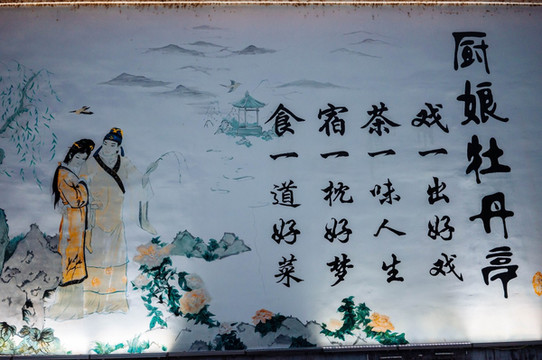 厨娘牡丹亭
戏一出好戏
茶一味人生
宿一枕好梦
食一道好菜